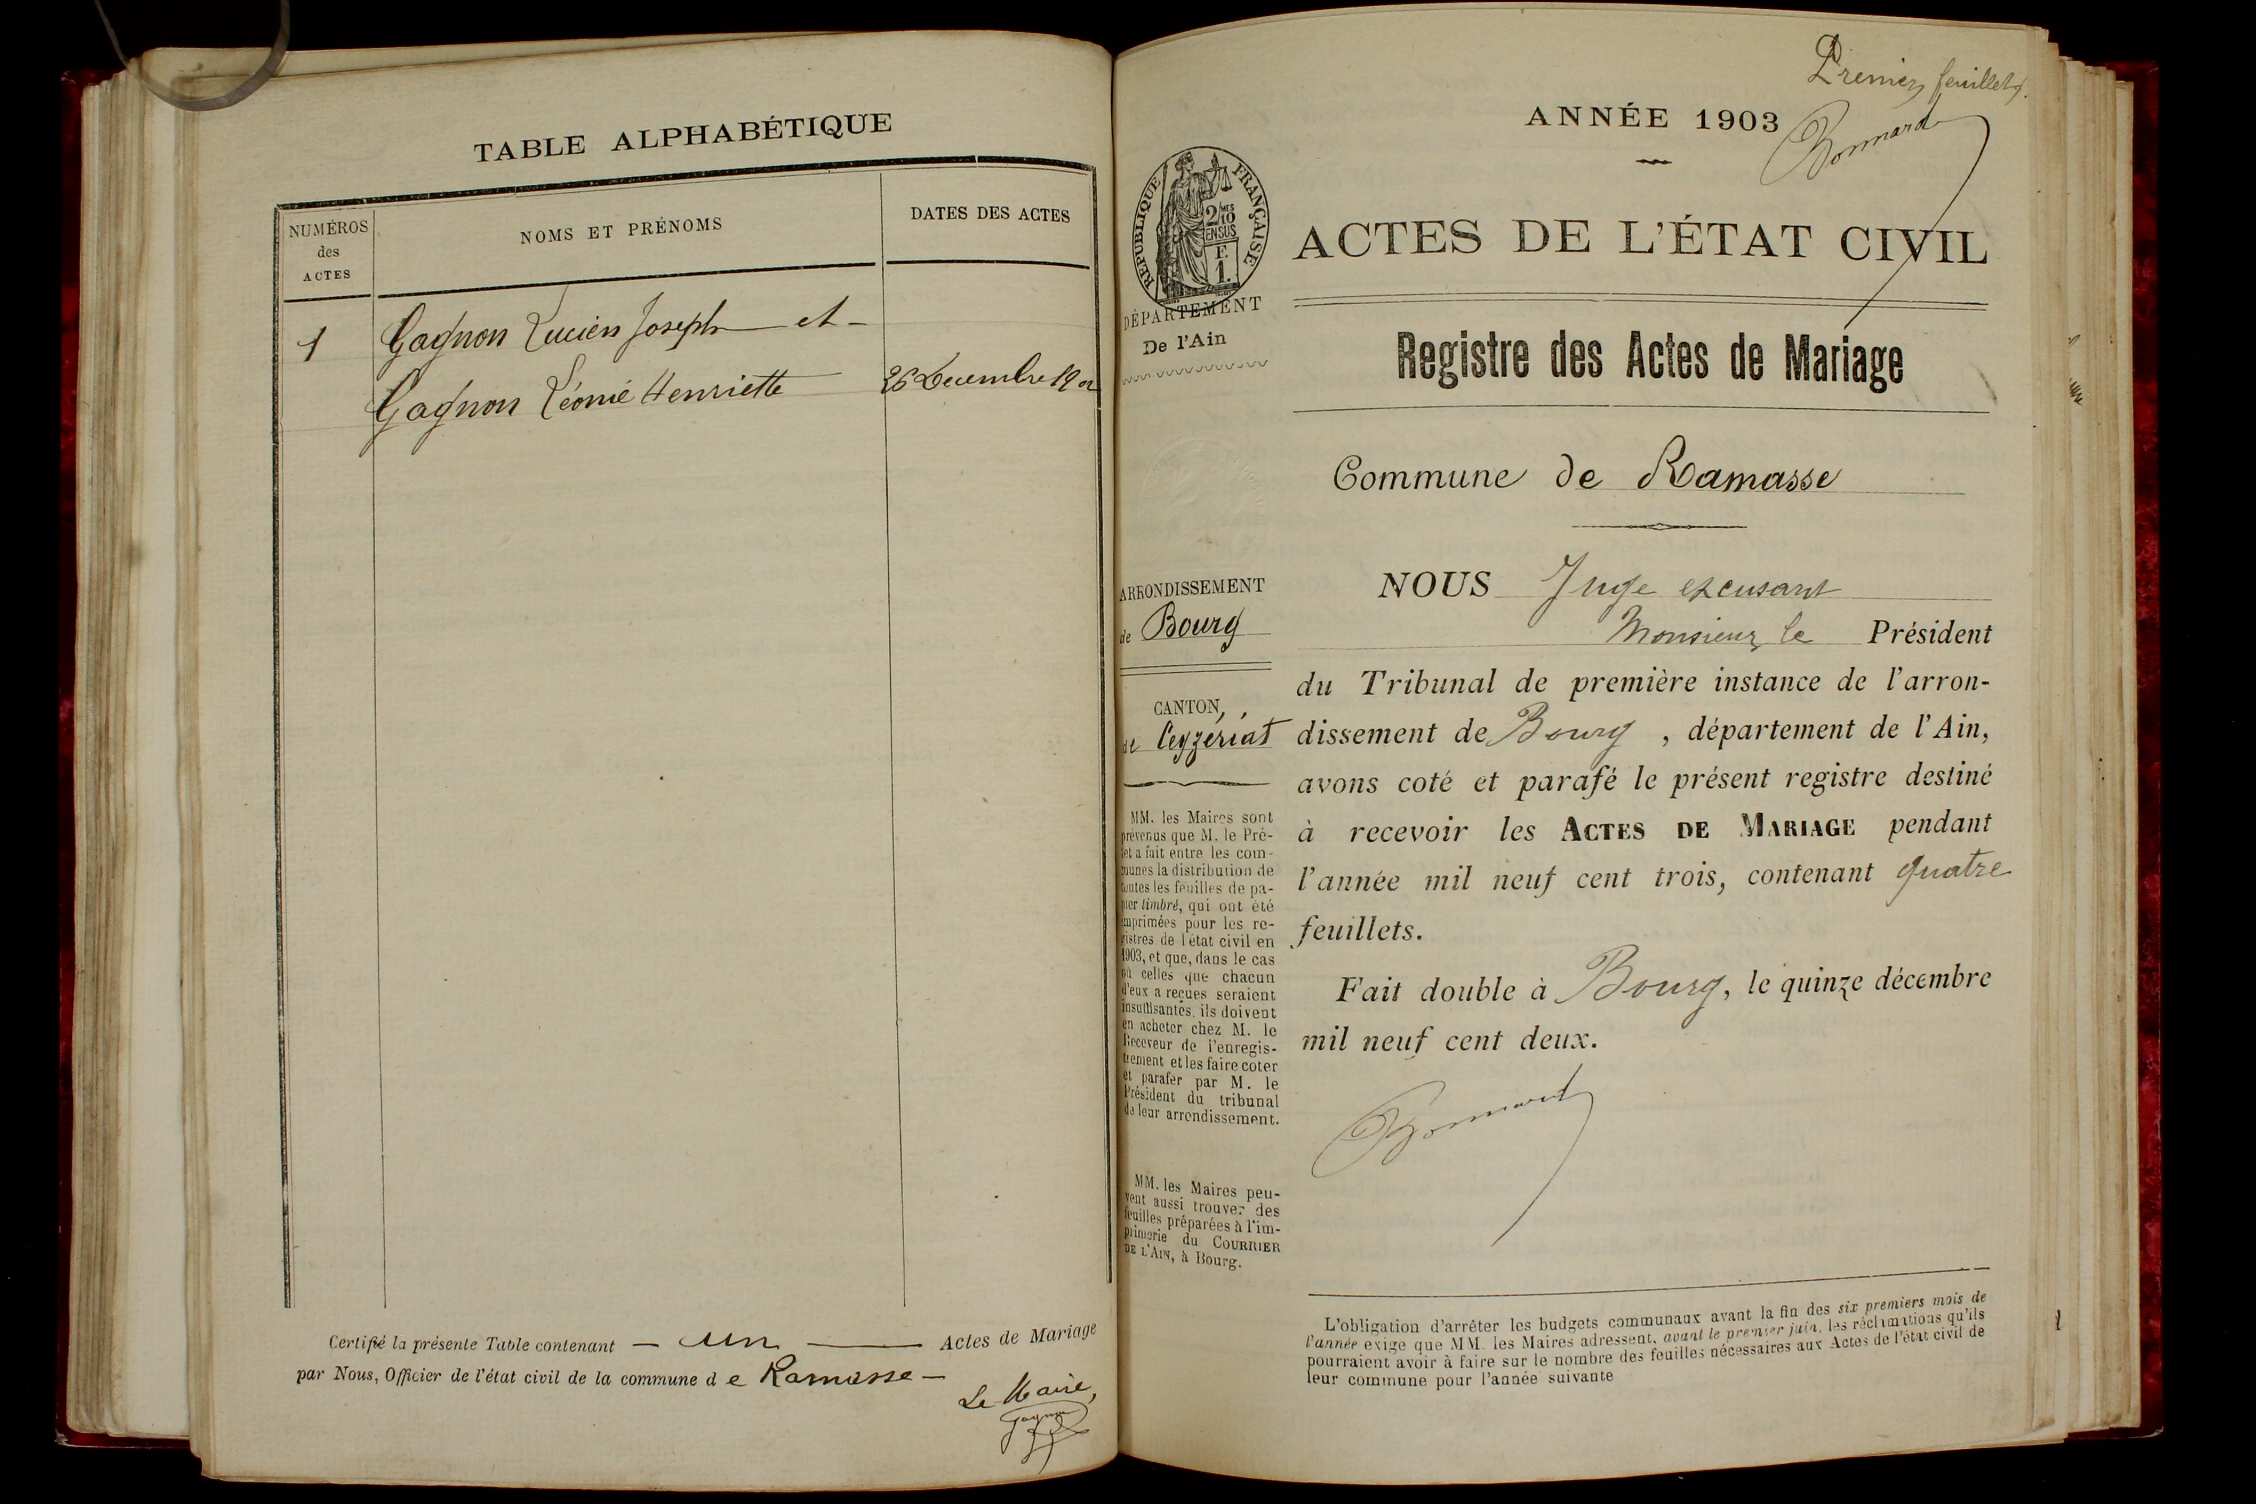 TABLE ALPHABÉTIQUE
NUMÉROS
des
ACTES
NOMS ET PRÉNOMS
DATES DES ACTES
1 Gagnon Lucien Joseph et
Gagnon Léonie Henriette 26 Décembre 190
Certifié la présente Table contenant — un — Actes de Mariage
par Nous, Officier de l'état civil de la commune de Ramasse —
Le Maire,
Gagnon
Premier feuillet.
ANNÉE 1903
Bonnard
RÉPUBLIQUE FRANÇAISE
2/10MES
EN SUS
F.
1.
ACTES DE L'ÉTAT CIVIL
DÉPARTEMENT
De l'Ain
Registre des Actes de Mariage
Commune de Ramasse
ARRONDISSEMENT
de Bourg
CANTON
de Ceyzériat
MM. les Maires sont
prévenus que M. le Pré-
fet a fait entre les com-
munes la distribution de
toutes les feuilles de pa-
pier timbré, qui ont été
imprimées pour les re-
gistres de l'état civil en
1903, et que, dans le cas
où celles que chacun
d'eux a reçues seraient
insuffisantes, ils doivent
en acheter chez M. le
Receveur de l'enregis-
trement et les faire coter
et parafer par M. le
Président du tribunal
de leur arrondissement.
MM. les Maires peu-
vent aussi trouver des
feuilles préparées à l'im-
primerie du COURRIER
DE L'AIN, à Bourg.
NOUS Juge excusant
Monsieur le Président
du Tribunal de première instance de l'arron-
dissement de Bourg, département de l'Ain,
avons coté et parafé le présent registre destiné
à recevoir les ACTES DE MARIAGE pendant
l'année mil neuf cent trois, contenant quatre
feuillets.
Fait double à Bourg, le quinze décembre
mil neuf cent deux.
Bonnard
L'obligation d'arrêter les budgets communaux avant la fin des six premiers mois de
l'année exige que MM. les Maires adressent, avant le premier juin, les réclamations qu'ils
pourraient avoir à faire sur le nombre des feuilles nécessaires aux Actes de l'état civil de
leur commune pour l'année suivante